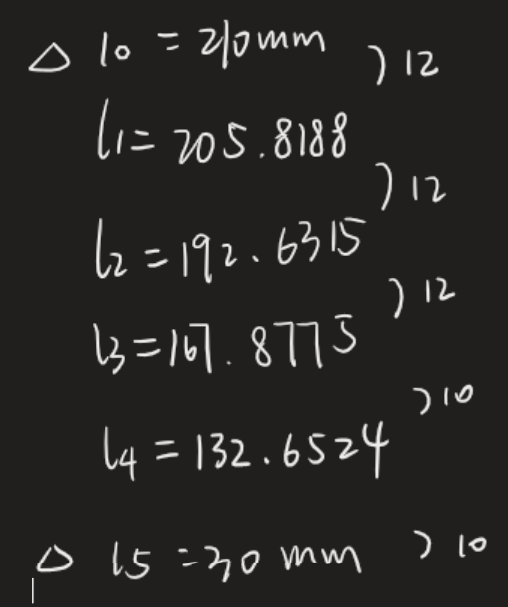 △ l0 = 210mm
) 12
l1 = 205.8188
) 12
l2 = 192.6315
) 12
l3 = 167.8775
) 10
l4 = 132.6524
) 10
△ l5 = 30 mm